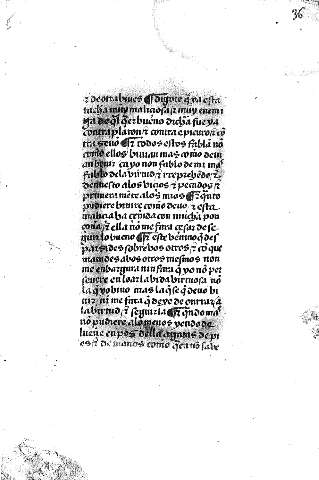 36
⁊ de otra biues ¶ digote q̃ ya esta
tacha muy maliciosa ⁊ muy enemi
ga de q̃l q̃er bueno dicha fue ya
contra platon ⁊ contra epicuro ⁊ cõ
tra zeno ¶ ⁊ todos estos fablã nõ
como ellos biuian mas como deui
an biuir ca yo non fablo de mi mas
fablo dela virtud ⁊ reprehẽdo ⁊
denuesto alos vicios ⁊ pecados ⁊
primera mẽte alos mios ¶ ⁊ quãto
pudiere biuire como deuo ⁊ esta
malicia con mucha pon
coña ⁊ ella nõ me fara cesar de se
guir lo bueno ¶ ⁊ este benino q̃ des
sobre los otros ⁊ cõ que
matades a vos otros mesmos non
me enbargara nin fara q̃ yo nõ per
seuere en loar la bida virtuosa nõ
la q̃ yo biuo mas la q̃ se q̃ deuo bi
uir ni me fara q̃ dexe de onrrar a
la virtud ⁊ seguirla ¶ q̃ndo mas
nõ pudiere alo menos yendo de
luene en pos della a gatas de pi
es ⁊ de manos como nõ sabe